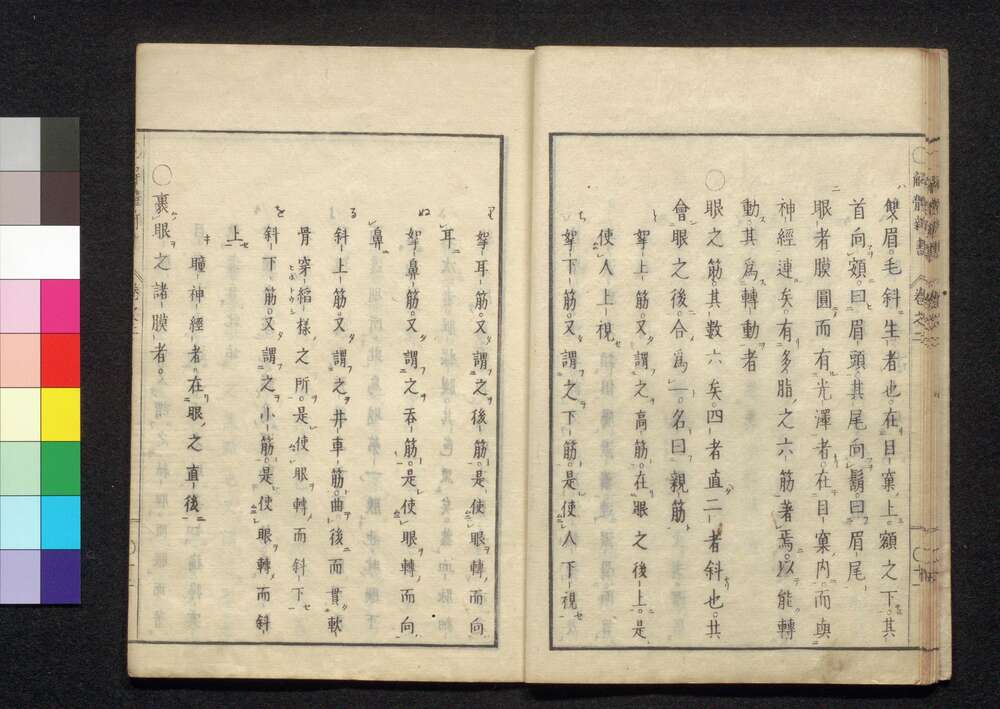 ハ雙眉。毛斜生者也。在目窠上額之下。其
首向頞。曰眉頭。其尾向鬢。曰眉尾
ニ眼者膜圓而有光澤者。在目窠内。而與
神經連矣。有多脂。之六筋著焉。以能轉
動。其爲轉動者
〇眼之筋。其數六矣。四者直。二者斜也。其
會眼之後。合爲一。名曰親筋
ト挐上筋。又謂之高筋。在眼之後上。是
使人上視
ち挐下筋。又謂之下筋。是使人下視
り挐耳筋。又謂之後筋。是使眼轉而向
耳
ぬ挐鼻筋。又謂之吞筋。是使眼轉而向
鼻
る斜上筋。又謂之井車筋。曲後而貫軟
骨穿縚樣之所。是使眼轉而斜下
を斜下筋。又謂之小筋。是使眼轉而斜
上
〇裹眼之諸膜者。
キ瞳神經者。在眼之直後
解體新書
卷之二